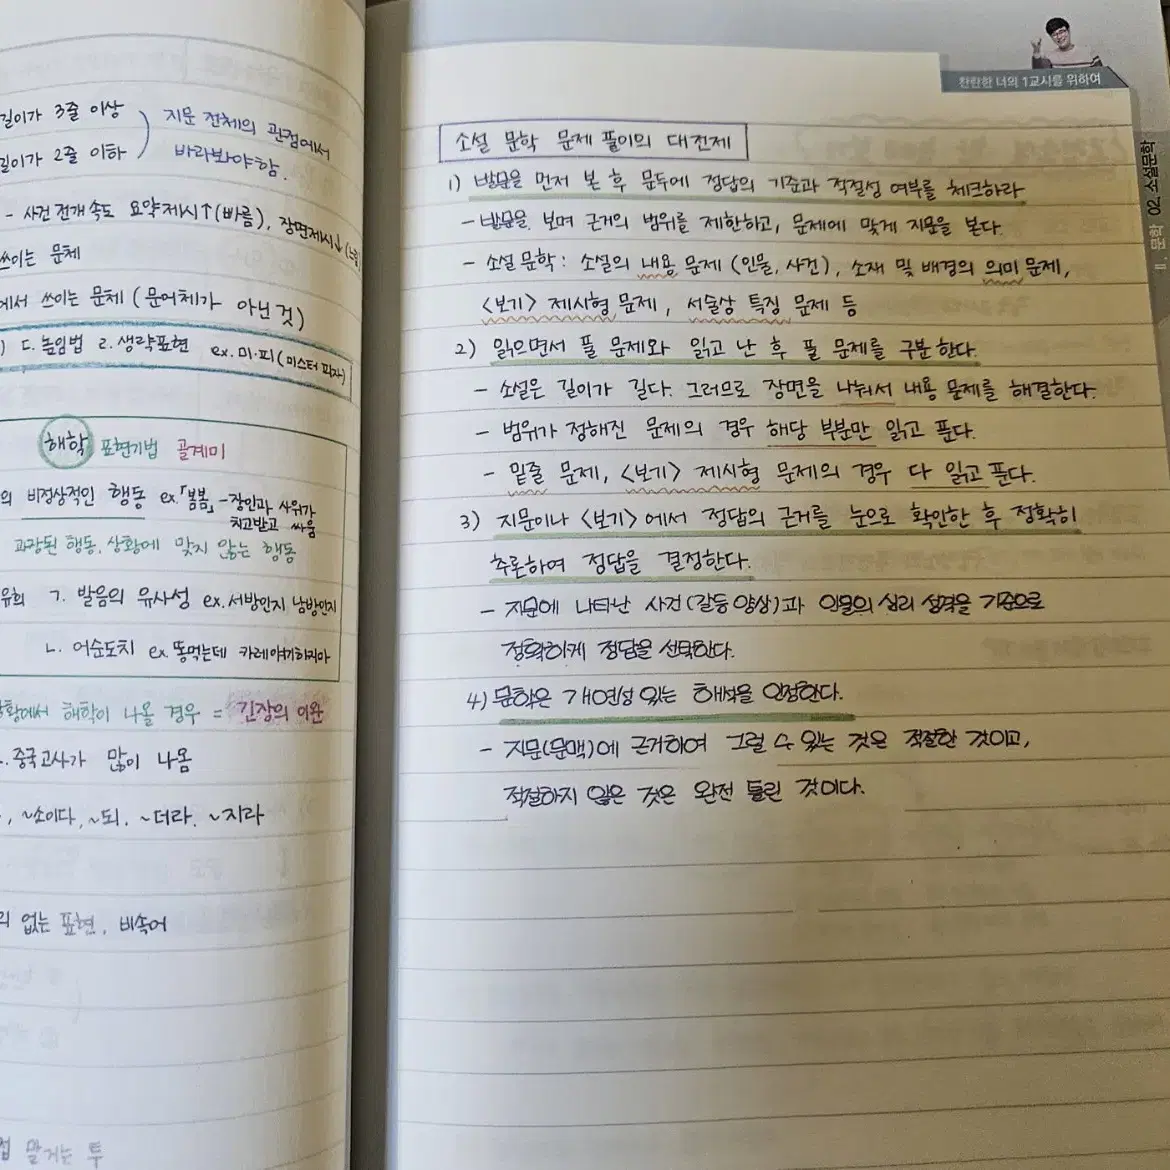 길이가 3줄 이상
길이가 2줄 이하
지문 전체의 관점에서
바라봐야함.
- 사건 전개 속도 요약제시↑(빠름), 장면제시↓
쓰이는 문체
에서 쓰이는 문체 (문어체가 아닌 것)
) ㄷ. 높임법 ㄹ. 생략표현 ex. 미·피 (미스터 피자)
해학 표현기법 골계미
의 비정상적인 행동 ex.「봄봄」 - 장인과 사위가
치고받고 싸움
과장된 행동, 상황에 맞지 않는 행동
유희 ㄱ. 발음의 유사성 ex. 서방인지 남방인지
ㄴ. 어순도치 ex. 똥먹는데 카레얘기하지마
상황에서 해학이 나올 경우 = 긴장의 이완
. 중국고사가 많이 나옴
, ~소이다, ~되, ~더라, ~지라
없는 표현, 비속어
말기는 투
찬란한 너의 1교시를 위하여
Ⅱ. 문학 02. 소설문학
소설 문학 문제 풀이의 대전제
1) 발문을 먼저 본 후 문두에 정답의 기준과 적절성 여부를 체크하라
- 발문을 보며 근거의 범위를 제한하고, 문제에 맞게 지문을 본다.
- 소설 문학 : 소설의 내용 문제 (인물, 사건), 소재 및 배경의 의미 문제,
<보기> 제시형 문제, 서술상 특징 문제 등
2) 읽으면서 풀 문제와 읽고 난 후 풀 문제를 구분한다.
- 소설은 길이가 길다. 그러므로 장면을 나눠서 내용 문제를 해결한다.
- 범위가 정해진 문제의 경우 해당 부분만 읽고 푼다.
- 밑줄 문제, <보기> 제시형 문제의 경우 다 읽고 푼다.
3) 지문이나 <보기>에서 정답의 근거를 눈으로 확인한 후 정확히
추론하여 정답을 결정한다.
- 지문에 나타난 사건(갈등 양상)과 인물의 심리 성격을 기준으로
정확하게 정답을 선택한다.
4) 문학은 개연성 있는 해석을 인정한다.
- 지문(문맥)에 근거하여 그럴 수 있는 것은 적절한 것이고,
적절하지 않은 것은 완전 틀린 것이다.